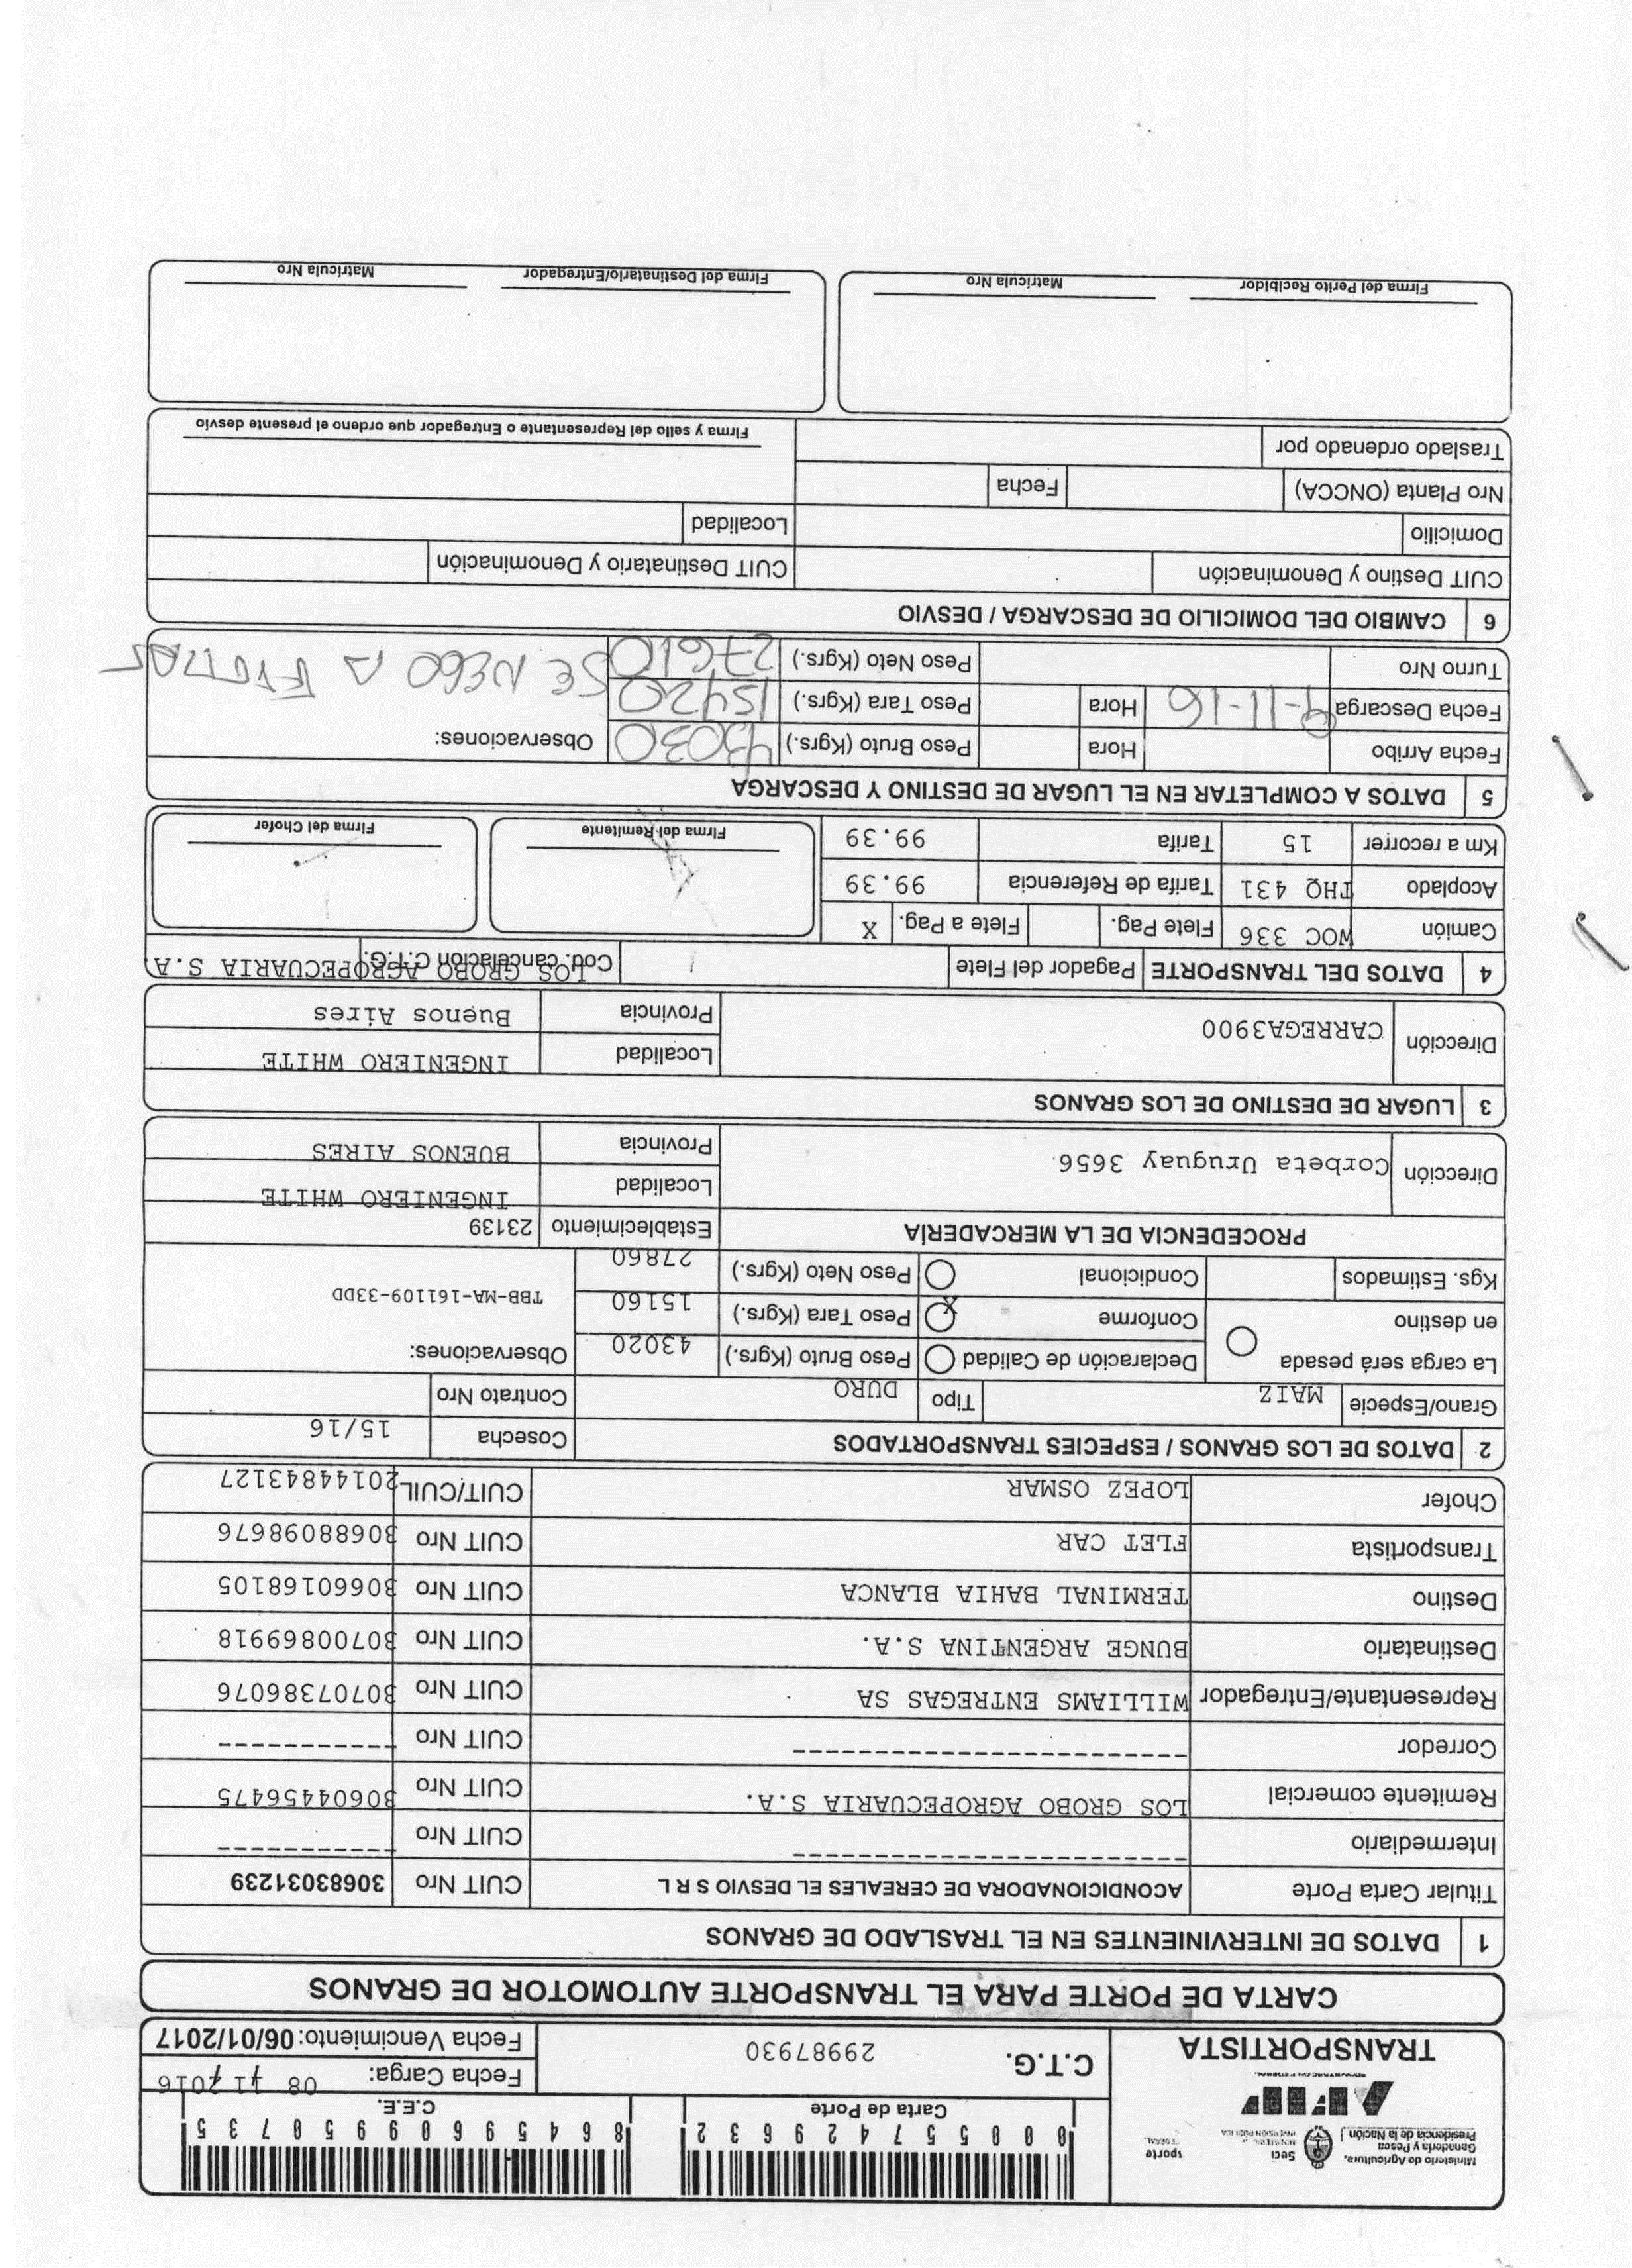 Ministerio de Agricultura,
Ganadería y Pesca
Presidencia de la Nación
Secr
sporte
AFIP
TRANSPORTISTA
000557429632
Carta de Porte
86459609950735
C.E.E.
C.T.G. 29987930
Fecha Carga: 08 11 2016
Fecha Vencimiento: 06/01/2017
CARTA DE PORTE PARA EL TRANSPORTE AUTOMOTOR DE GRANOS
1 DATOS DE INTERVINIENTES EN EL TRASLADO DE GRANOS
Titular Carta Porte ACONDICIONADORA DE CEREALES EL DESVIO S R L CUIT Nro 30683031239
Intermediario ------------------------ CUIT Nro -----------
Remitente comercial LOS GROBO AGROPECUARIA S.A. CUIT Nro 30604456475
Corredor ------------------------ CUIT Nro -----------
Representante/Entregador WILLIAMS ENTREGAS SA CUIT Nro 30707386076
Destinatario BUNGE ARGENTINA S.A. CUIT Nro 30700869918
Destino TERMINAL BAHIA BLANCA CUIT Nro 30660168105
Transportista FLET CAR CUIT Nro 30688098676
Chofer LOPEZ OSMAR CUIT/CUIL 20144843127
2 DATOS DE LOS GRANOS / ESPECIES TRANSPORTADOS Cosecha 15/16
Grano/Especie MAIZ Tipo DURO Contrato Nro
La carga será pesada en destino Declaración de Calidad Peso Bruto (Kgrs.) 43020 Observaciones:
Conforme X Peso Tara (Kgrs.) 15160 TBB-MA-161109-33DD
Kgs. Estimados Condicional Peso Neto (Kgrs.) 27860
PROCEDENCIA DE LA MERCADERÍA Establecimiento 23139
Dirección Corbeta Uruguay 3656 Localidad INGENIERO WHITE
Provincia BUENOS AIRES
3 LUGAR DE DESTINO DE LOS GRANOS
Dirección CARREGA3900 Localidad INGENIERO WHITE
Provincia Buenos Aires
4 DATOS DEL TRANSPORTE Pagador del Flete Cod. cancelación C.T.G. LOS GROBO AGROPECUARIA S.A
Camión WOC 336 Flete Pag. Flete a Pag. X
Acoplado THQ 431 Tarifa de Referencia 99.39
Km a recorrer 15 Tarifa 99.39
Firma del Remitente Firma del Chofer
5 DATOS A COMPLETAR EN EL LUGAR DE DESTINO Y DESCARGA
Fecha Arribo Hora Peso Bruto (Kgrs.) 43030 Observaciones:
Fecha Descarga 9-11-16 Hora Peso Tara (Kgrs.) 15420
Turno Nro Peso Neto (Kgrs.) 27610 SE NEGO A FIRMAR
6 CAMBIO DEL DOMICILIO DE DESCARGA / DESVIO
CUIT Destino y Denominación CUIT Destinatario y Denominación
Domicilio Localidad
Nro Planta (ONCCA) Fecha
Traslado ordenado por
Firma y sello del Representante o Entregador que ordeno el presente desvio
Firma del Perito Recibidor Matricula Nro Firma del Destinatario/Entregador Matricula Nro